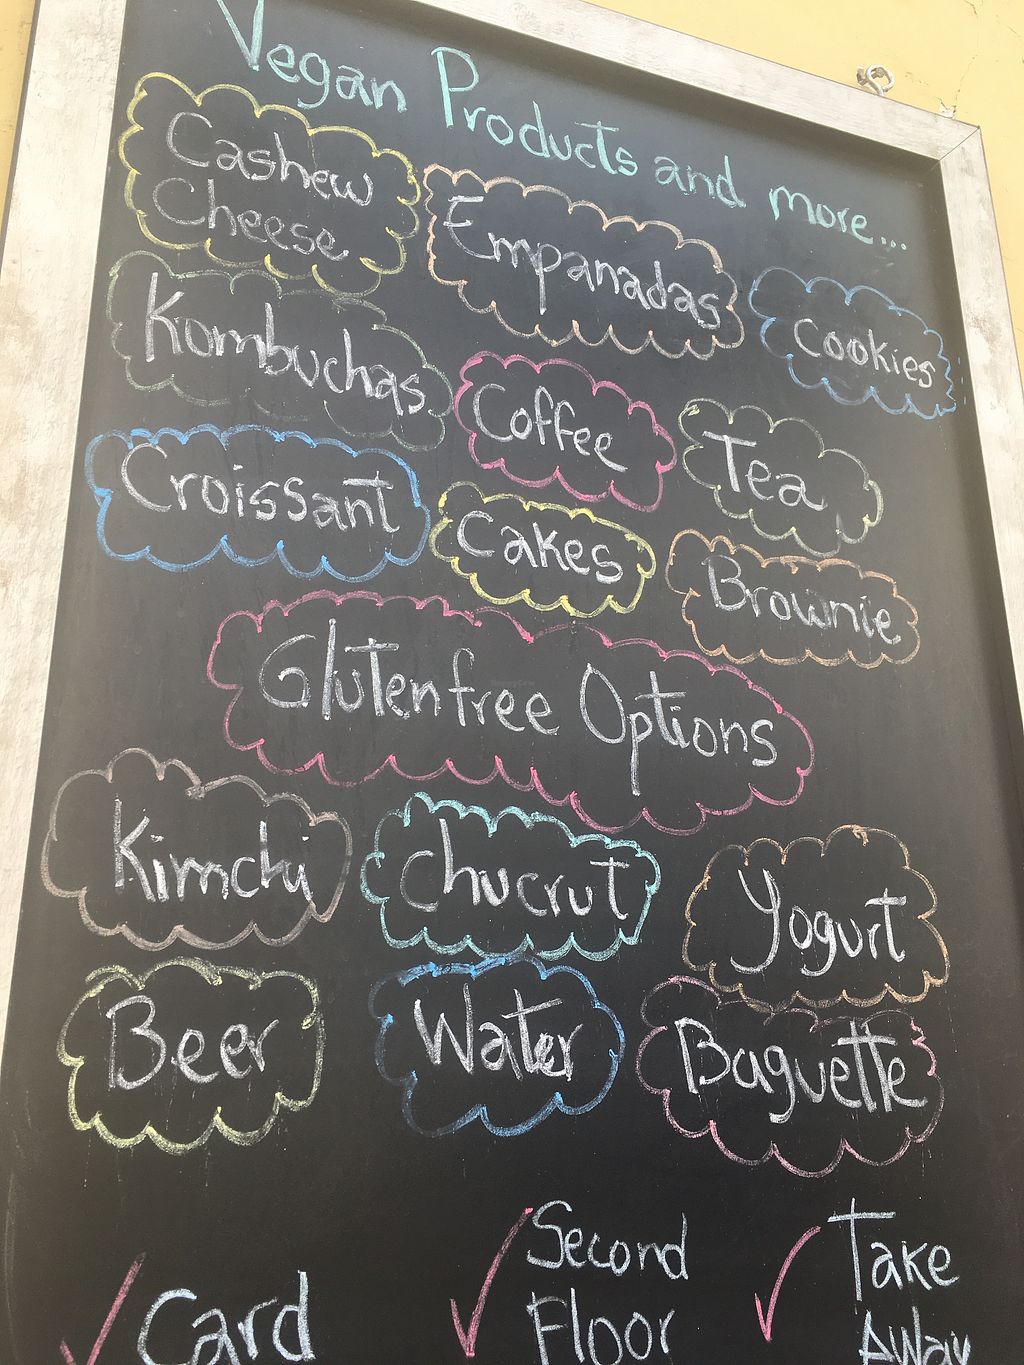 Vegan Products and more...
Cashew
Cheese
Empanadas
Cookies
Kombuchas
Coffee
Tea
Croissant
Cakes
Brownie
Gluten free Options
Kimchi
Chucrut
Yogurt
Beer
Water
Baguette
Card
Second
Floor
Take
Away